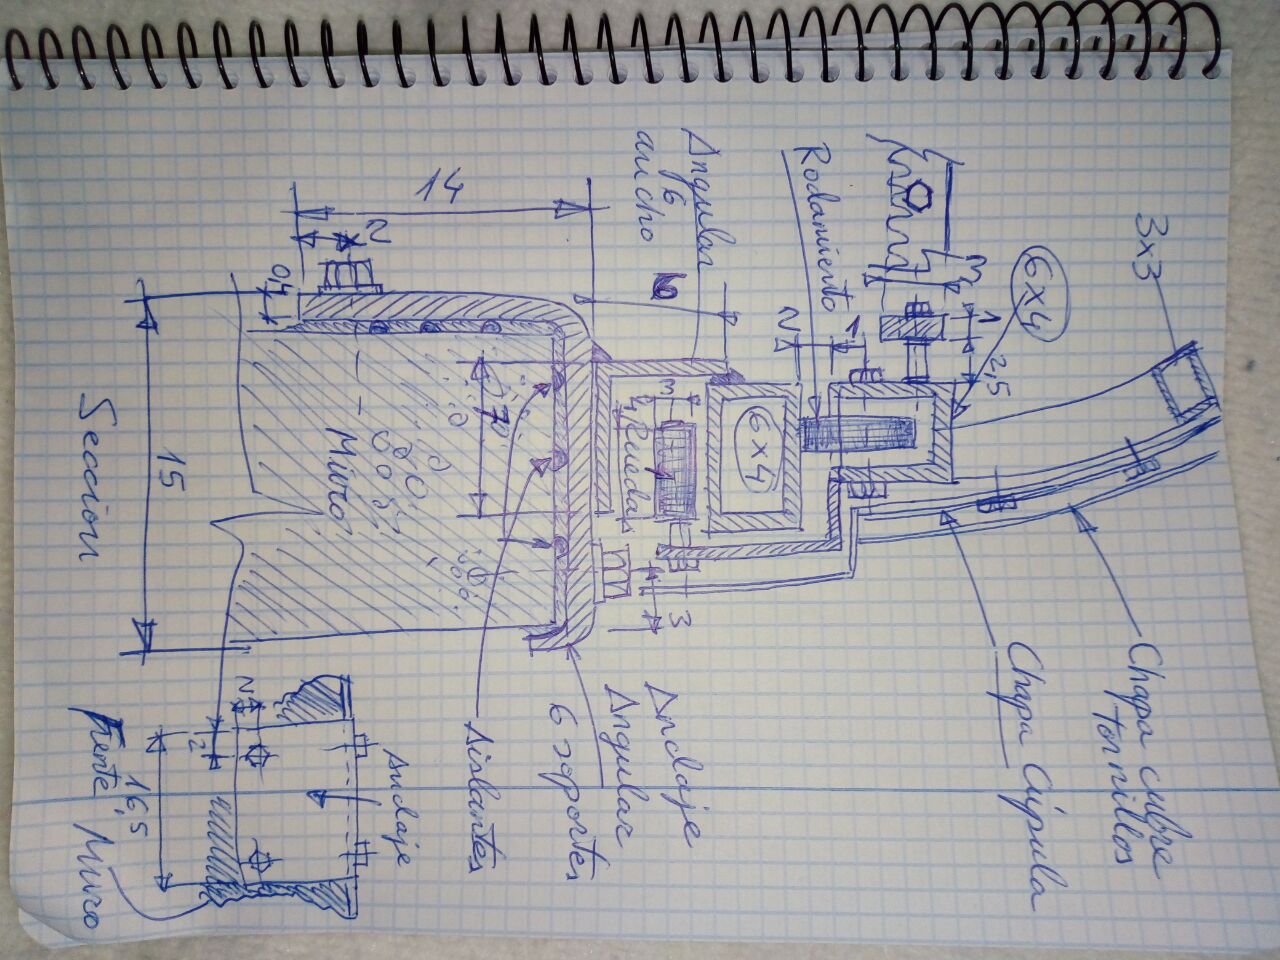 3x3
Chapa cubre
tornillos
6x4
Chapa Cúpula
3
1
2,5
1
Rodamiento
2
6x4
Angular
6
ancho
6
3
4
Rueda
3
Anclaje
Angular
6 soportes
7
Aislantes
14
2
Muro
0,4
15
Sección
Anclaje
2
2
16,5
Frente Muro